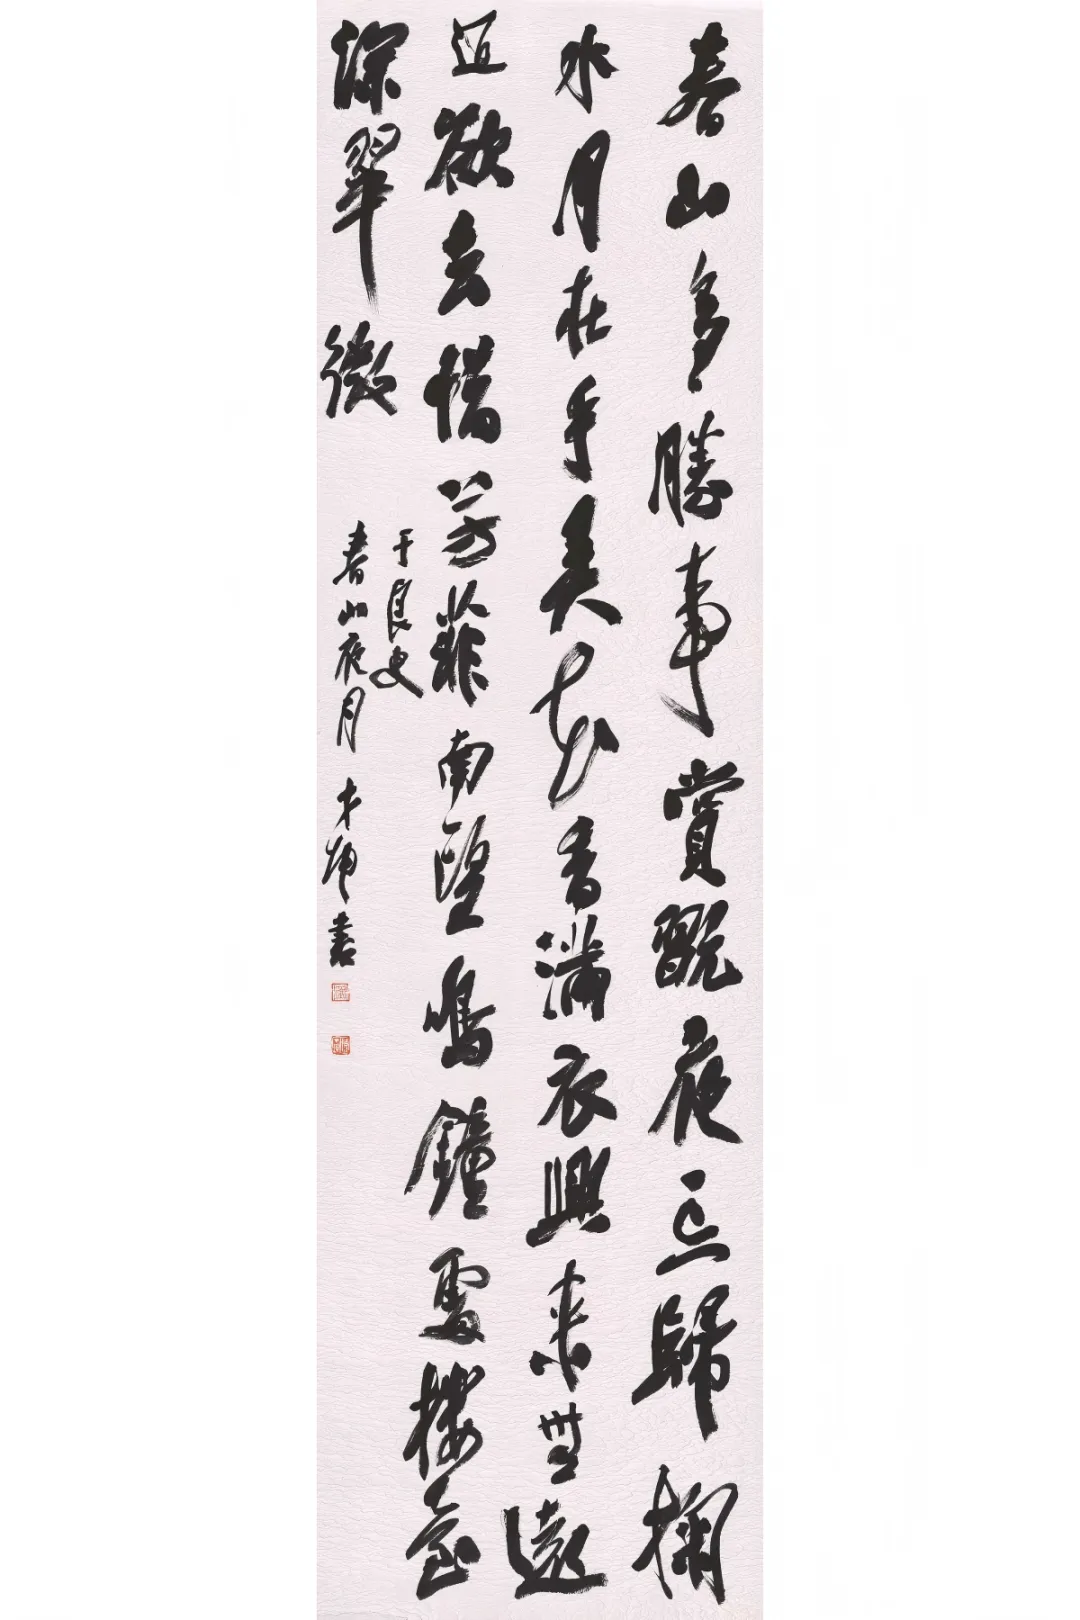 春山多勝事賞翫夜忘歸掬
水月在手弄花香滿衣興來無遠
近欲去惜芳菲南望鳴鐘處樓臺
深翠微
于良史
春山夜月 才 書